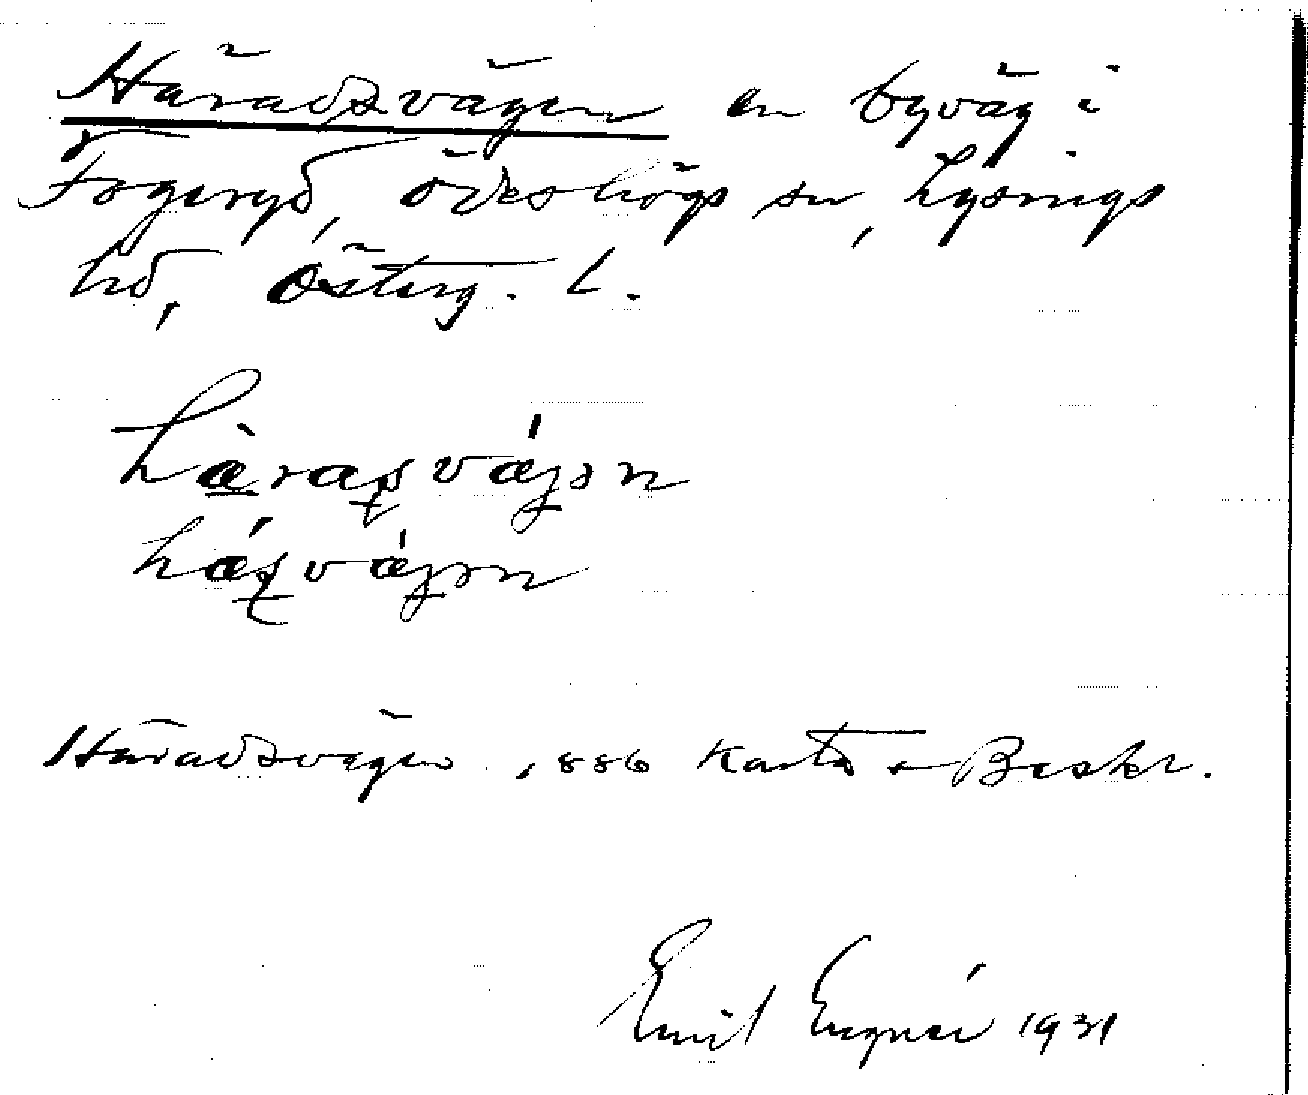 Häradsvägen en byväg i
Fogeryd, Ödeshögs sn, Lysings
hd, Österg. l.
hä̀rasvä́jən
hä́svä́jən
Häradsvägen 1886 Karta o Beskr.
Emil 1931